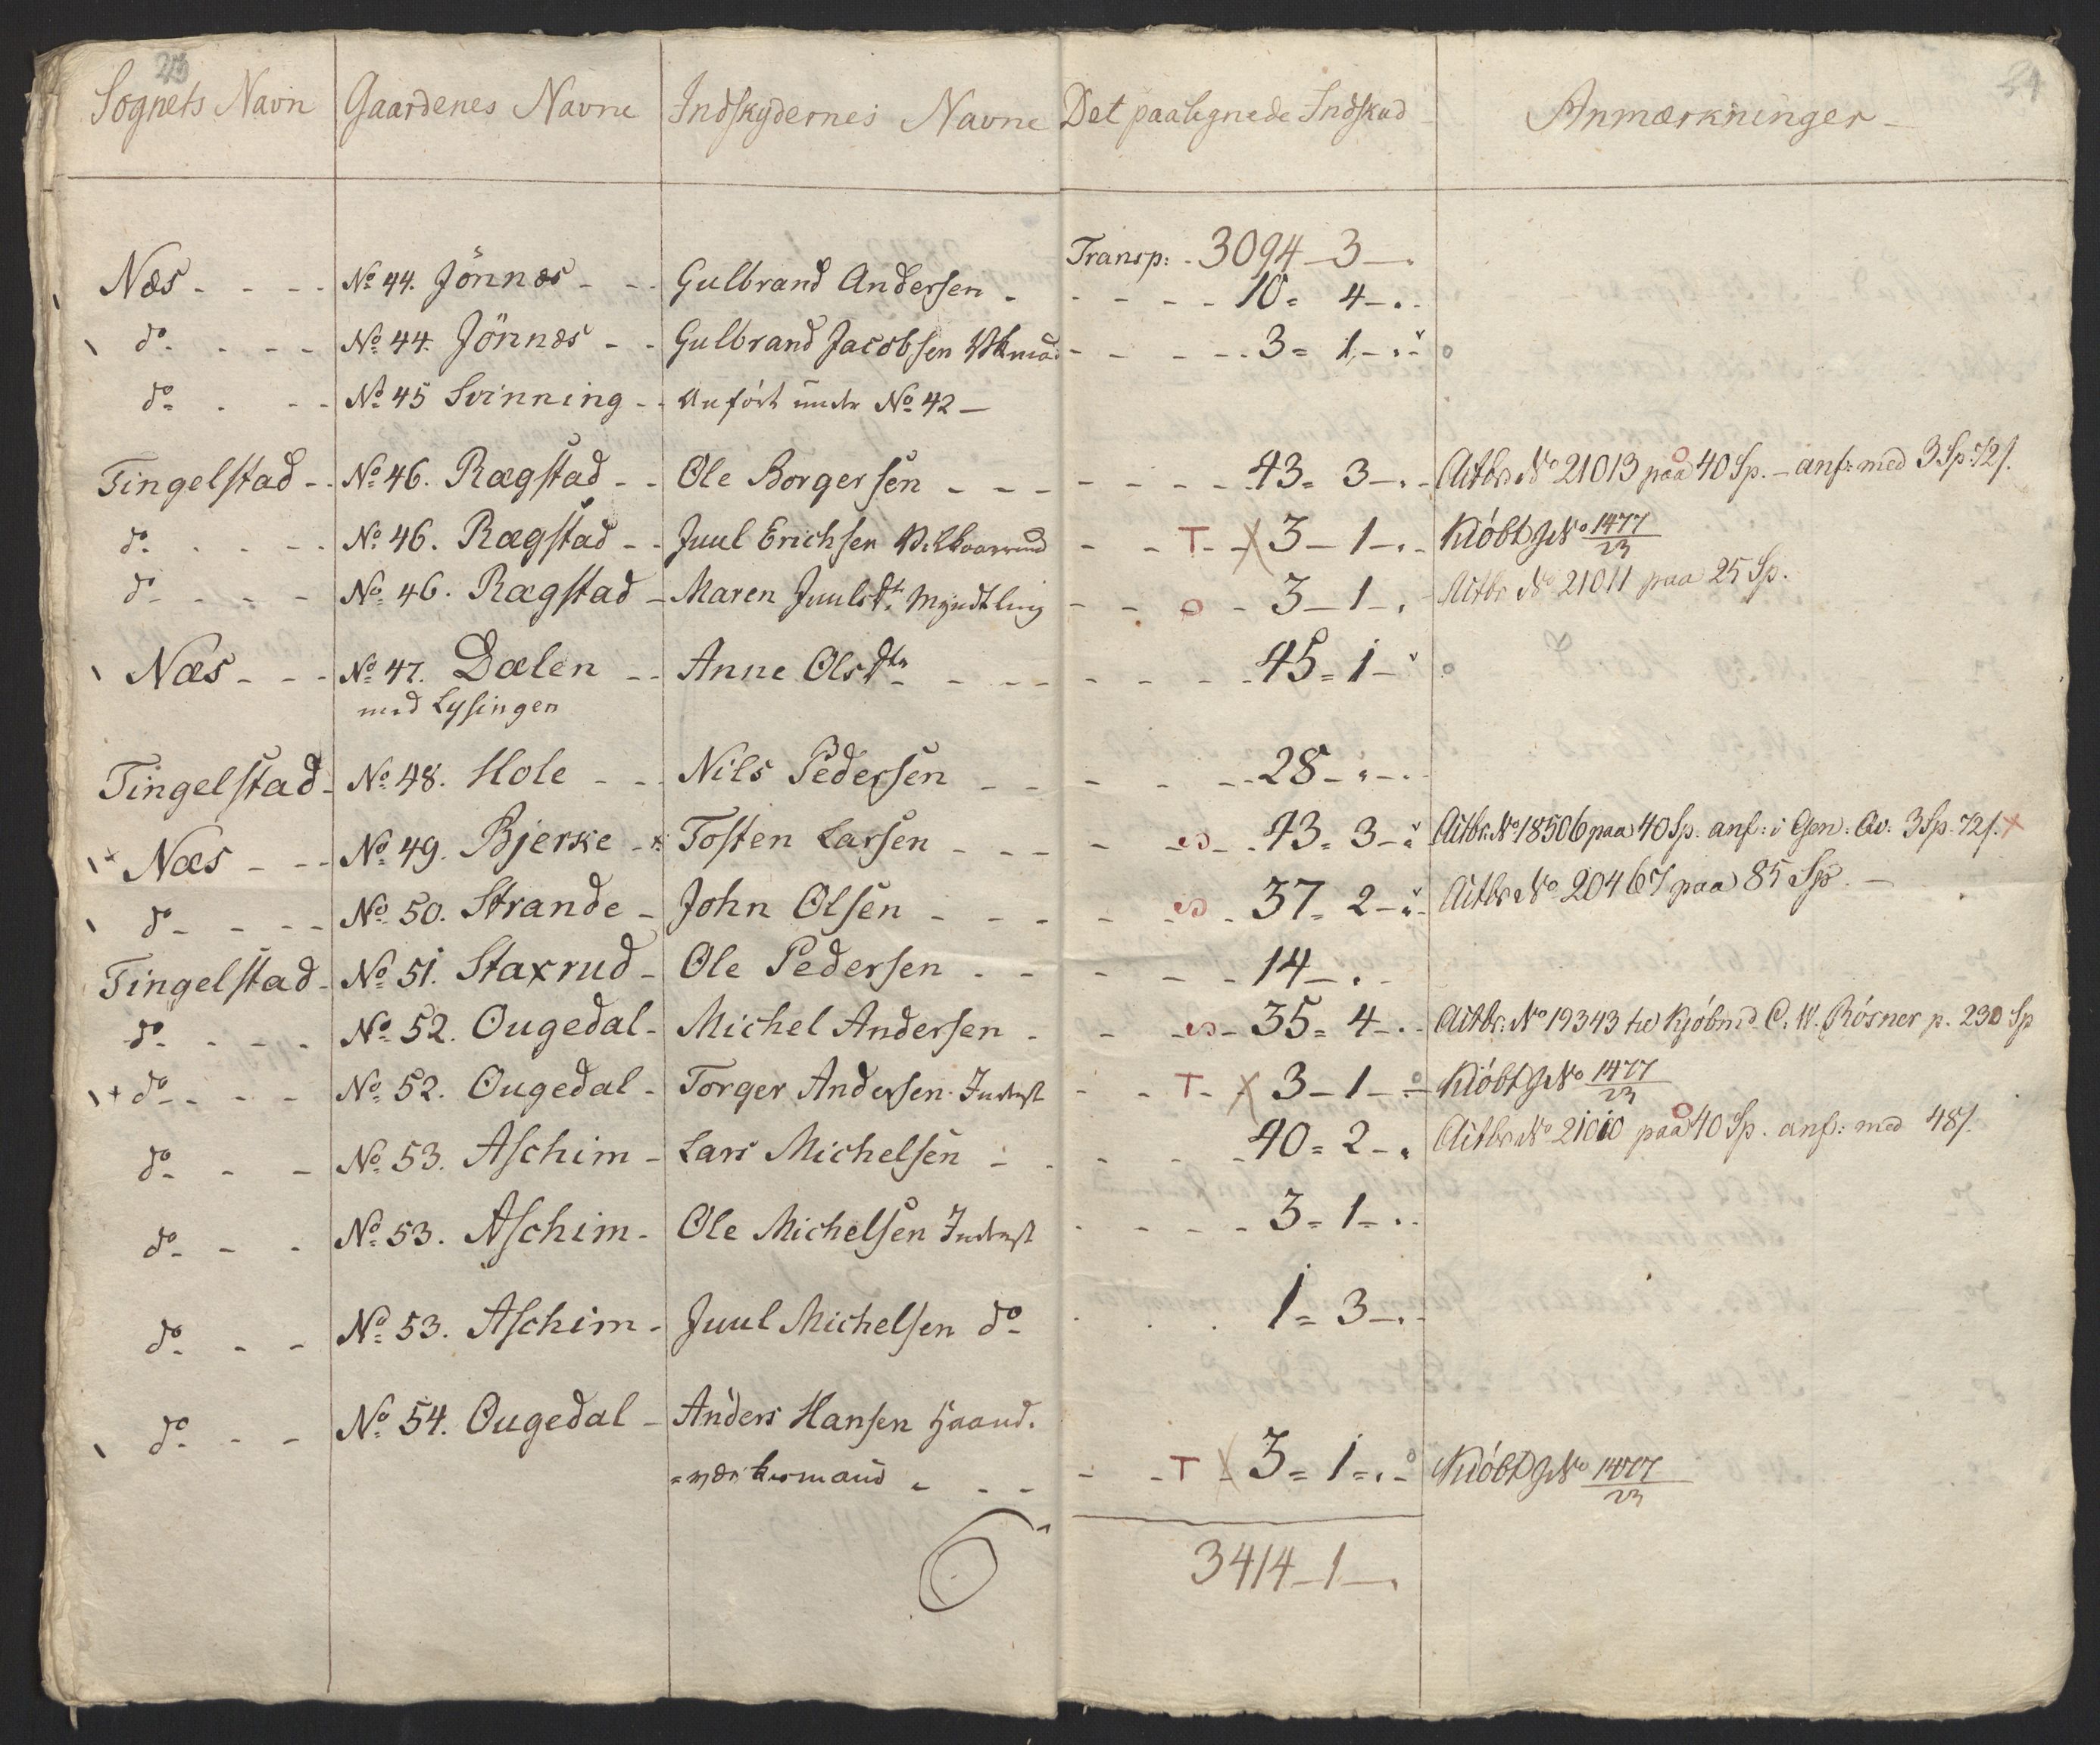 23
24
Sognets Navn Gaardenes Navne Indskydernes Navne Det paalignede Indskud Anmærkninger
Transp: 3094 - 3 - .
Næs No 44. Jönnæs Gulbrand Andersen 10 = 4 - .
do No 44. Jönnæs Gulbrand Jacobsen 3 = 1 - .
do No 45 Svinning Anført under No 42 -
Tingelstad No 46. Rægstad Ole Borgersen 43 = 3 - . Actbr. No 21013 paa 40 Sp. - anf: med 3 Sp: 72 s.
do No 46. Rægstad Juul Erichsen T X 3 - 1 - . Kiöbt J No 1477/23
do No 46. Rægstad Maren Juulsdtr Myndtling o 3 - 1 - . Actbr No 21011 paa 25 Sp.
Næs No 47. Dælen Anne Olsdtr 45 = 1 -
med Lysingen
Tingelstad No 48. Hole Nils Pedersen 28 - . - .
Næs No 49. Bjerke Tosten Larsen 43 = 3 - Actbr. No 18506 paa 40 Sp. anf: i Gen: Qv: 3 Sp. 72 s. x
do No 50. Strande John Olsen 37 = 2 - Actbr No 20467 paa 85 Sp. -
Tingelstad No 51. Staxrud Ole Pedersen 14 - .
do No 52. Ougedal Michel Andersen 35 = 4 - . Actbr: No 19343 til Kjöbmd C. W. Rösner p. 230 Sp
+ do No 52. Ougedal Torger Andersen Inderst T X 3 - 1 - Kiöbt J No 1477/23
do No 53. Aschim Lars Michelsen 40 = 2 - . Actbr No 21010 paa 40 Sp. anf: med 48 s.
do No 53. Aschim Ole Michelsen Inderst 3 = 1 - .
do No 53. Aschim Juul Michelsen do 1 = 3 - .
do No 54. Ougedal Anders Hansen Haand-
=værkermand T X 3 = 1 = . Kiöbt J No 1477/23
3414 - 1 - .